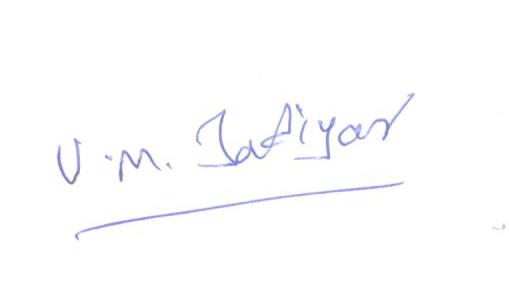 V.M. Jatiyar